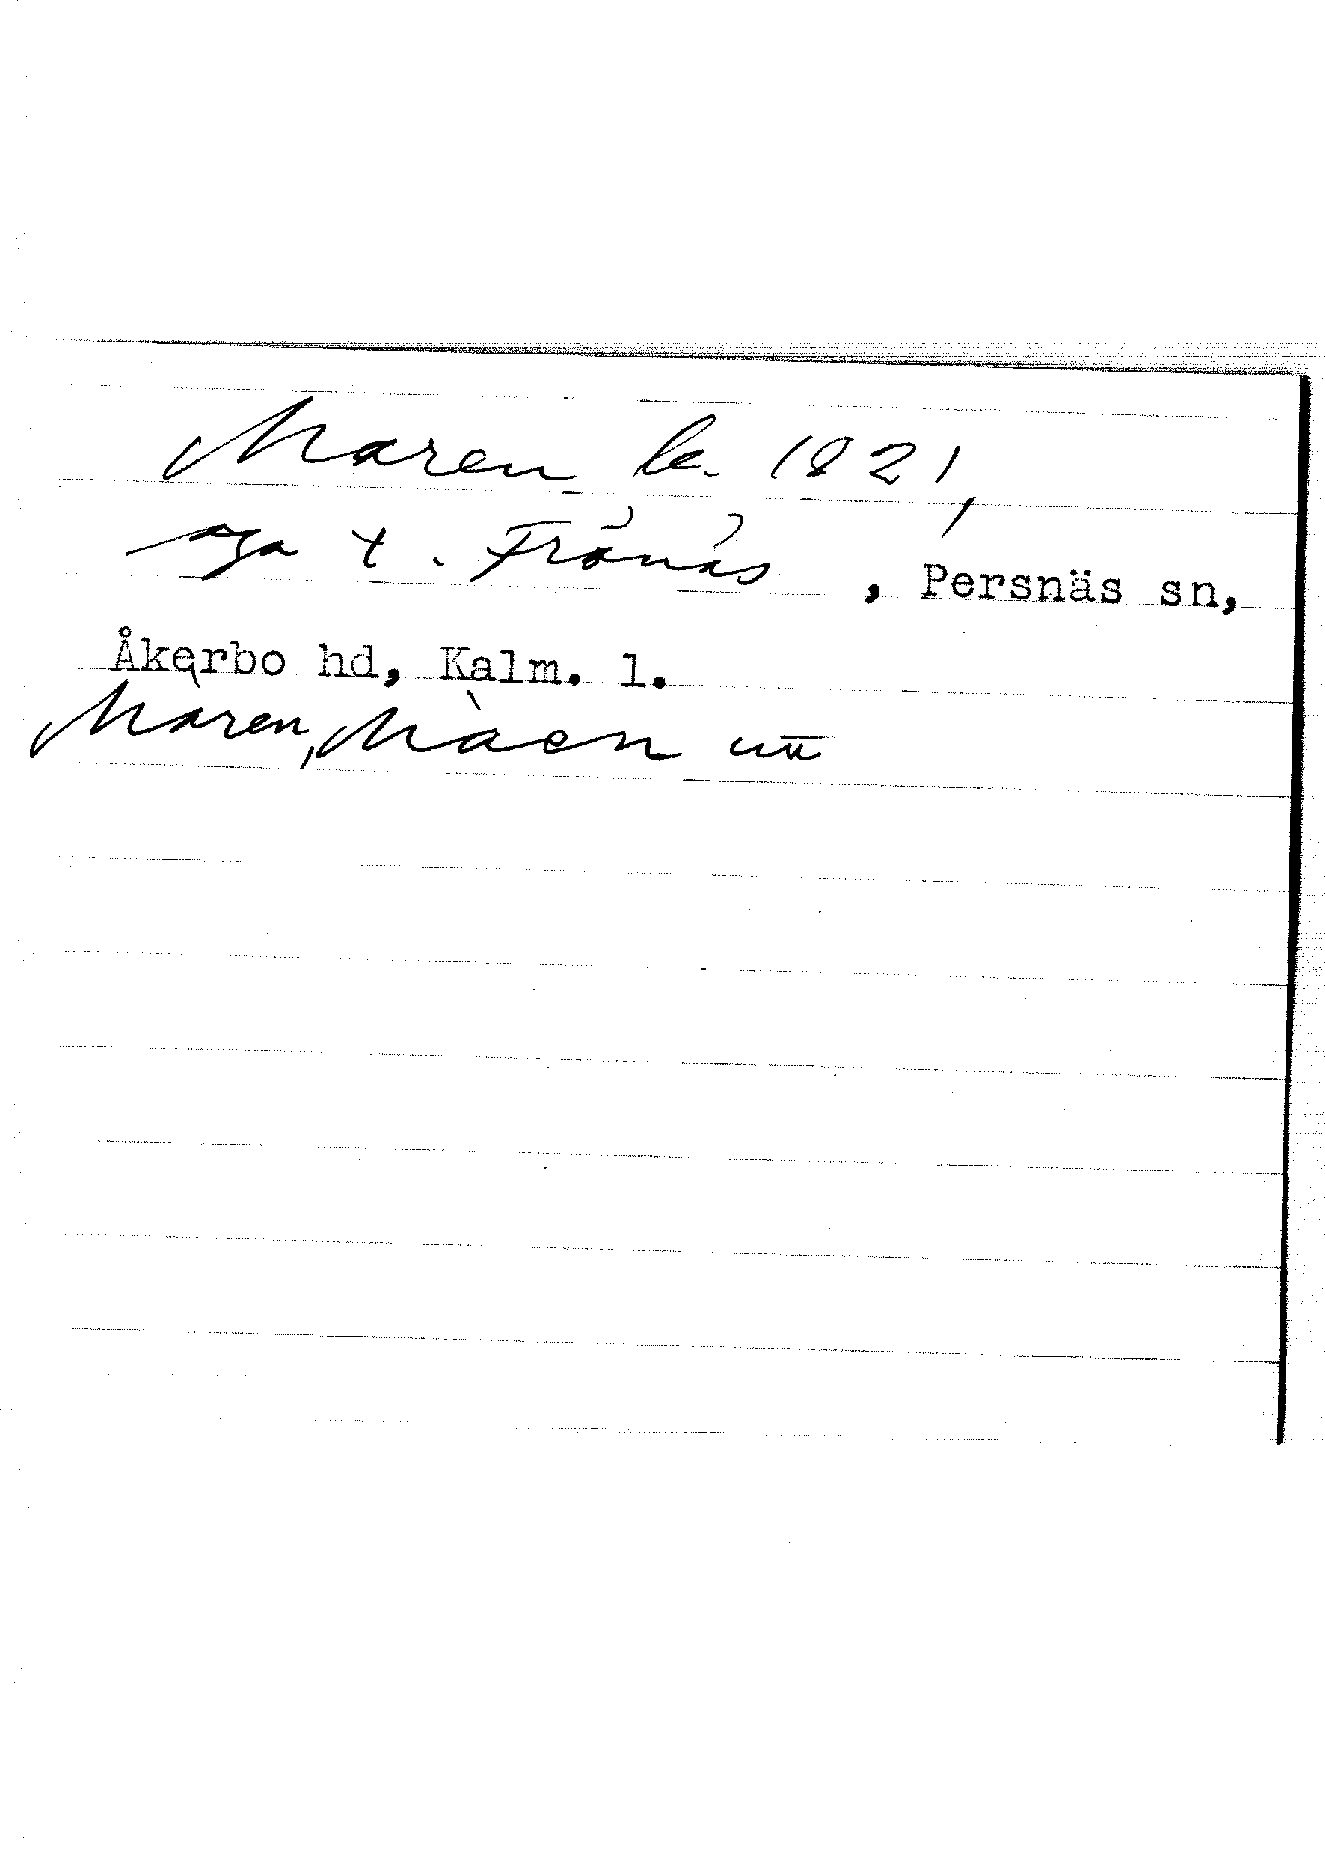 Maren le. 1821,
äga t. Frönäs, Persnäs sn,
Åkerbo hd, Kalm. l.
Màren, Màen utt